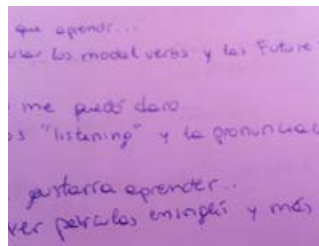 que aprendí...
usar los modal verbs y las Future
me quedó claro
os "listening" y la pronunciac
gustaría aprender..
ver películas en inglés y más